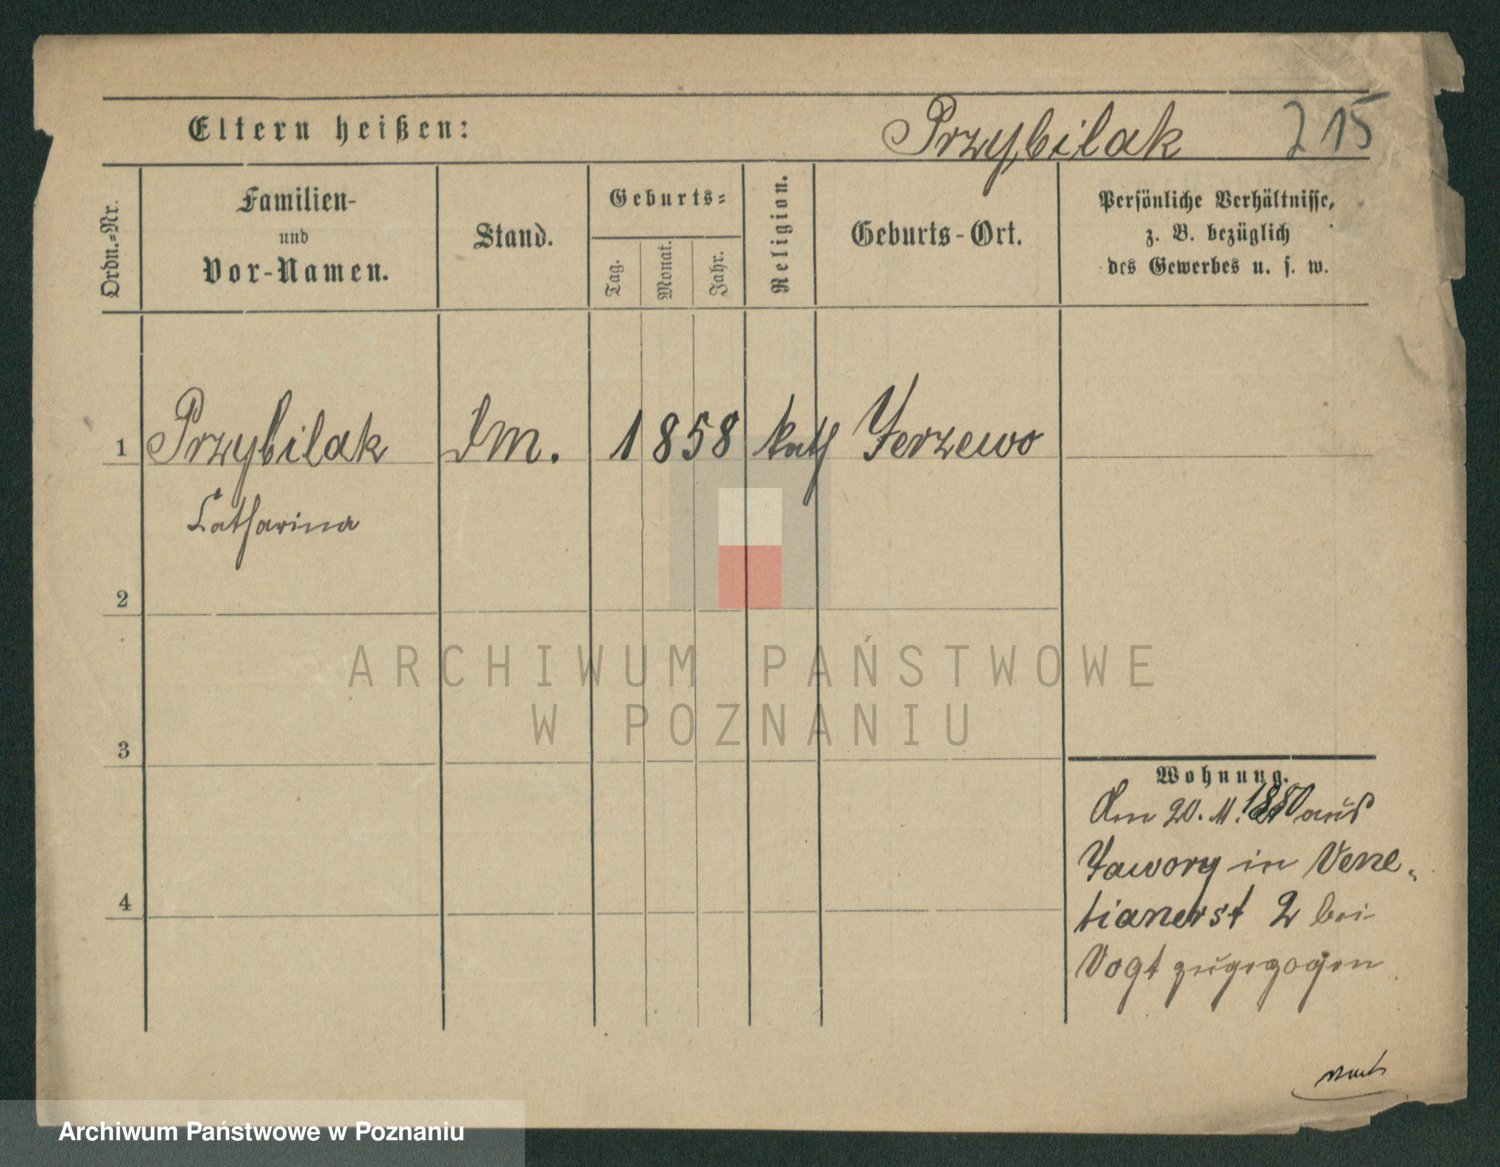 Eltern heißen: Przybilak 215
Ordn.-Nr.
Familien-
und
Vor-Namen.
Stand.
Geburts-
Tag. Monat. Jahr.
Religion.
Geburts-Ort.
Persönliche Verhältnisse,
z. B. bezüglich
des Gewerbes u. s. w.
1 Przybilak Dm. 1858 kath Jerzewo
Catharina
2
3
4
Wohnung.
Am 20. 11. 1880 aus
Jawory in Vene-
tianerst 2 bei
Vogt zugezogen
ARCHIWUM PAŃSTWOWE
W POZNANIU
Archiwum Państwowe w Poznaniu